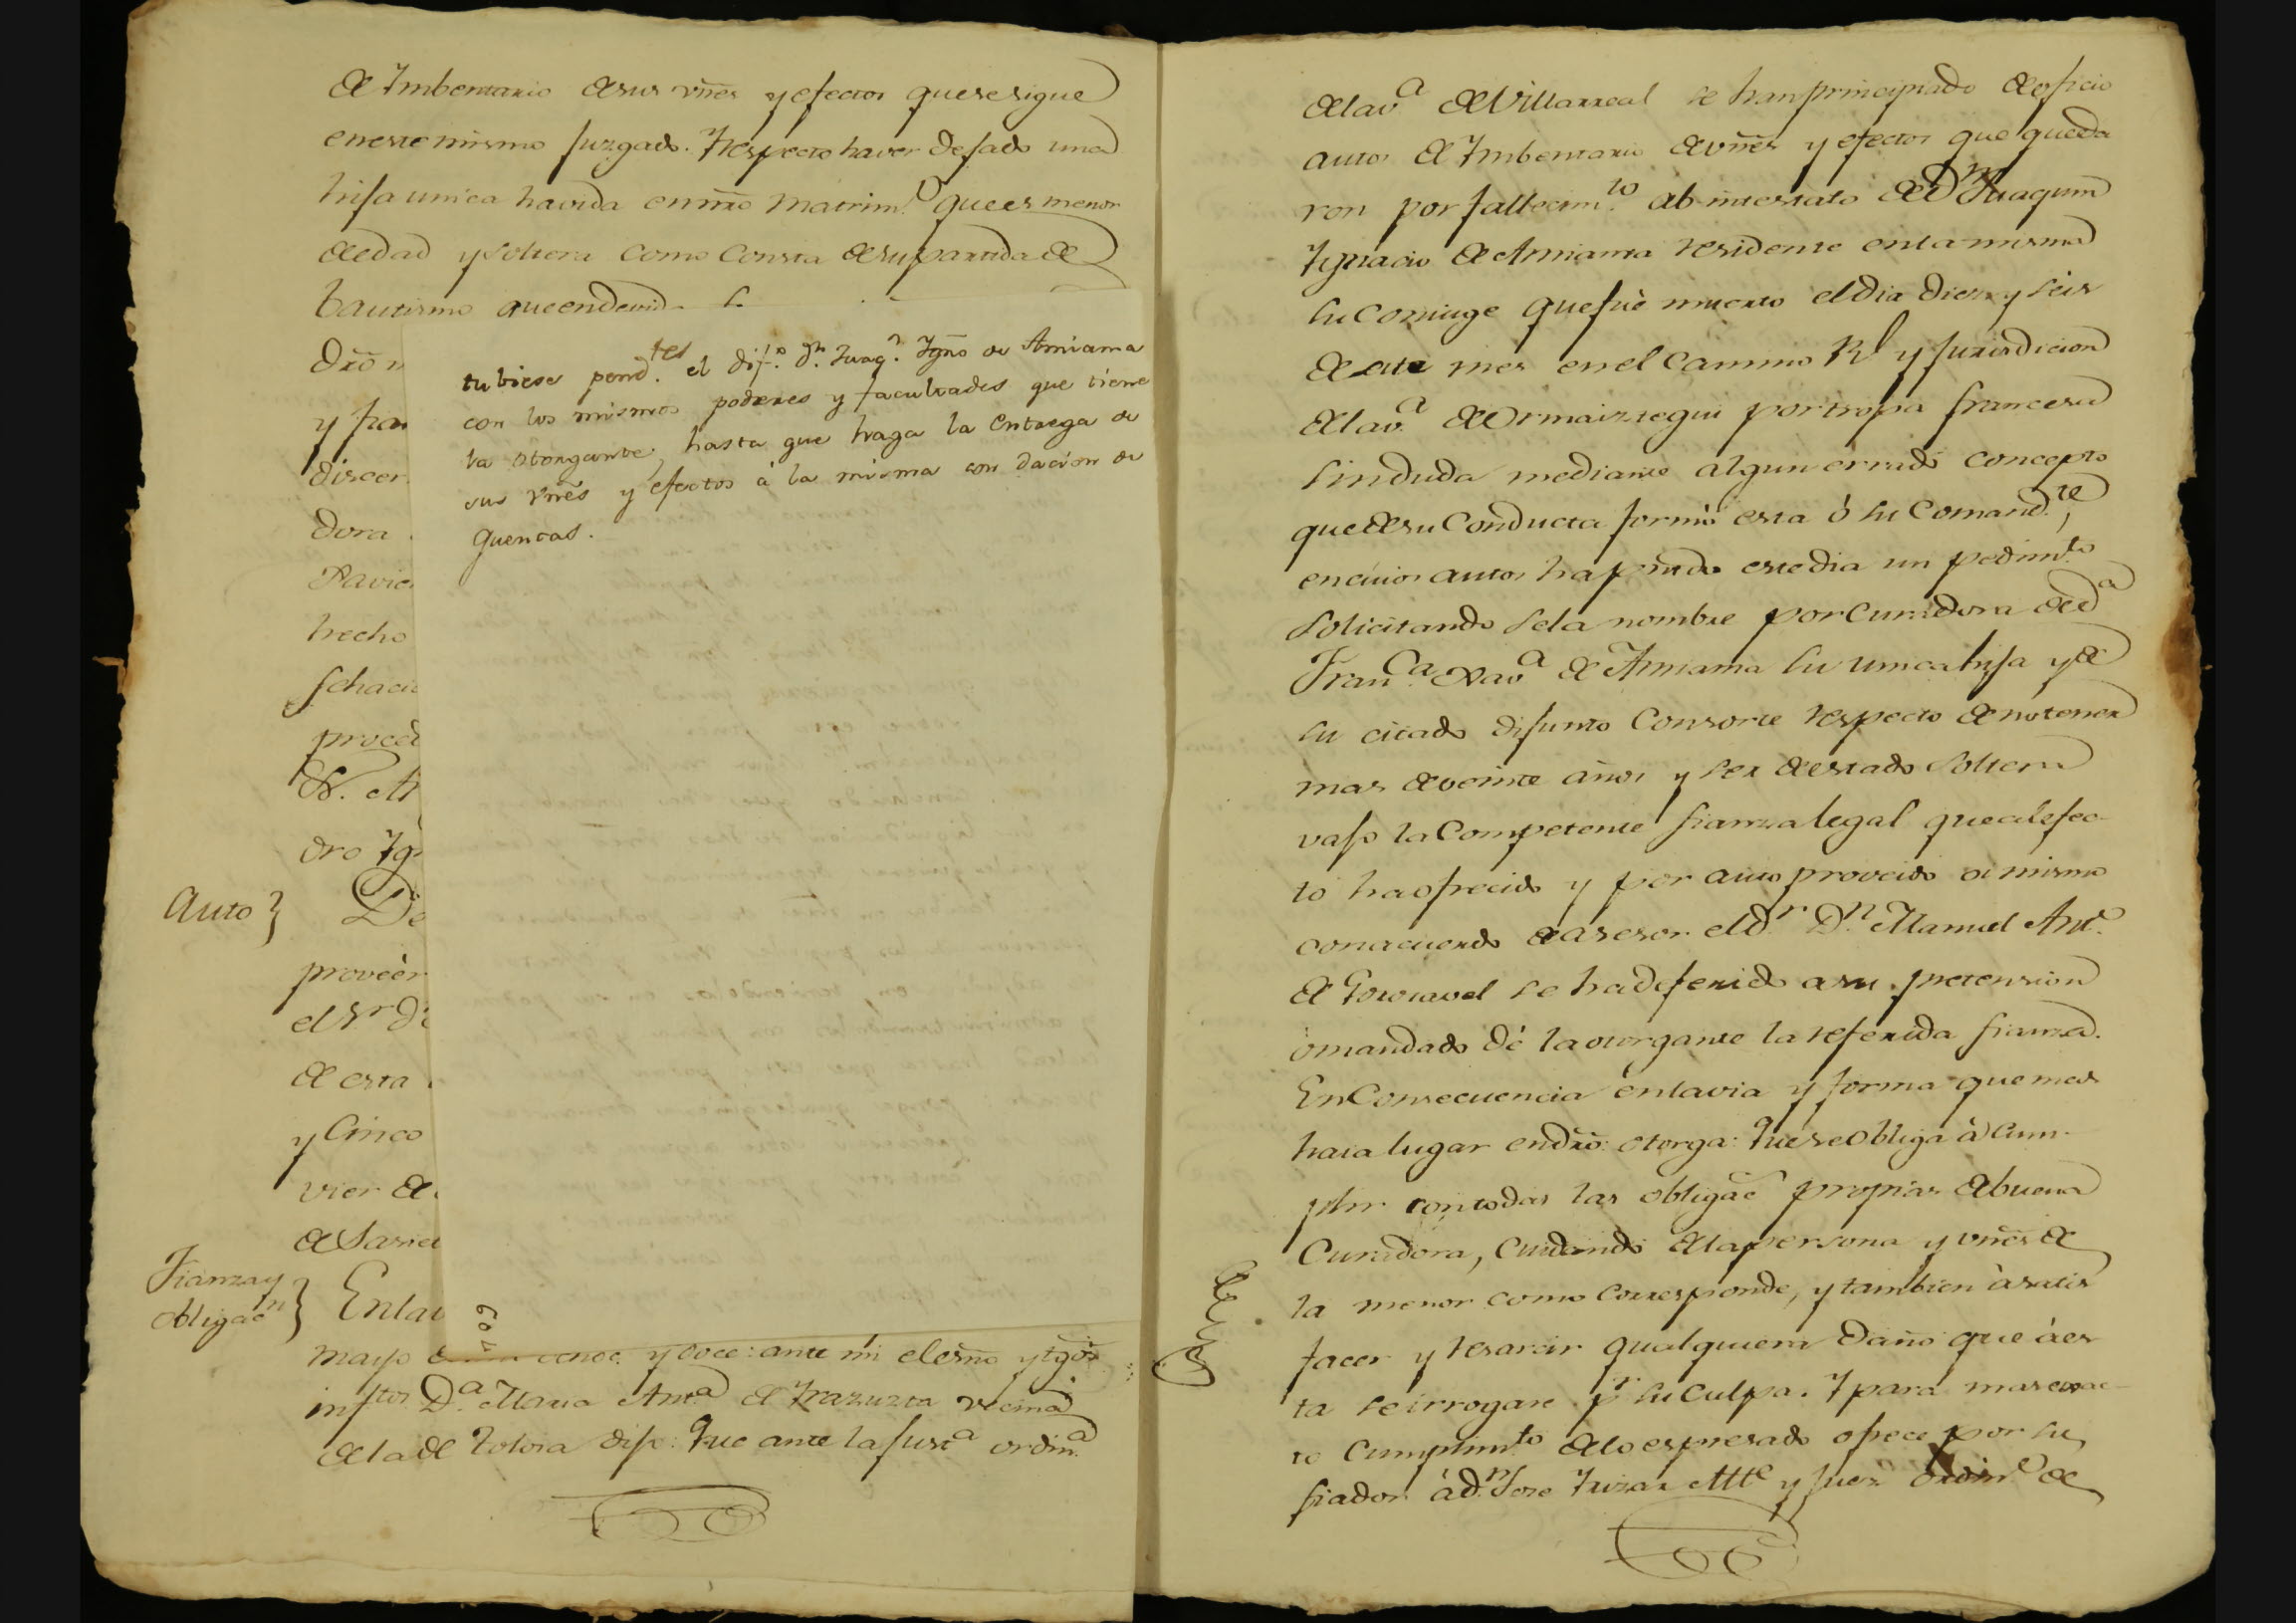 de Imbentario de sus vñes y efectos que se sigue
en este mismo Juzgado. Y respecto haver dejado una
hija unica havida en nrõ Matrim.º que es menor
de edad y soltera como consta de su partida de
bautismo que en
drõ
y fran
discer
dora
Xavie
hecho
fehacie
proced
dro Ygn
Auto } De
proveér
el Sr D
de esta
y Cinco
vier de
Fianza y
obligacⁿ } En la
mayo de y doce: ante mi el esnõ y tgõs
inf.tos D.ª Maria Ant.ª de Yrazuzta vecina
de la de Tolosa dijo: Que ante la Just.ª ordin.ª
tubiese pend.tes el dif.º Dn. Juaqⁿ. Ygnº de Amiama
con los mismos poderes y facultades que tiene
la otorgante, hasta que haga la entrega de
sus vnẽs y efectos à la misma con dacion de
quentas.
de la v.ª de Villarreal se han principiado de oficio
autos de Imbentario de vñes y efectos que queda
ron por fallecim.to ab-intestato de Dn Juaquin
Ygnacio de Amiama residente en la misma
su Coniuge que fué muerto el dia diez y seis
de este mes en el Camino Rl y Jurisdicion
de la v.ª de Ormaiztegui por tropa francesa
sin duda mediante algun errado concepto
que de su Conducta formó esta ó su Comand.te,
en cuios autos ha pñtado este dia un pedim.to
solicitando se la nombre por Curadora de D.ª
Fran.ca Xav.ª de Amiama su unica hija y de
su citado difunto Consorte respecto de no tener
mas de veinte años y ser de estado soltera
vajo la Competente fianza legal que al efec-
to ha ofrecido y por auto proveido oi mismo
con acuerdo de asesor el Dr Dn. Manuel Ant.º
de Gorozavel se ha deferido a su pretension
i mandado dé la otorgante la referida fianza.
En Consecuencia en la via y forma que mas
haia lugar en drõ: otorga: Que se obliga à cum-
plir con todas las obligac̃ propias de buena
Curadora, cuidando de la persona y vñes de
la menor como corresponde, y tambien à satis
facer y resarcir qualquiera daño que à es
ta se irrogare pr su culpa. Y para mas exac-
to Cumplim.to de lo espresado ofrece por su
fiador à Dn. Jose Yrizar Alte y Juez ordin.º de